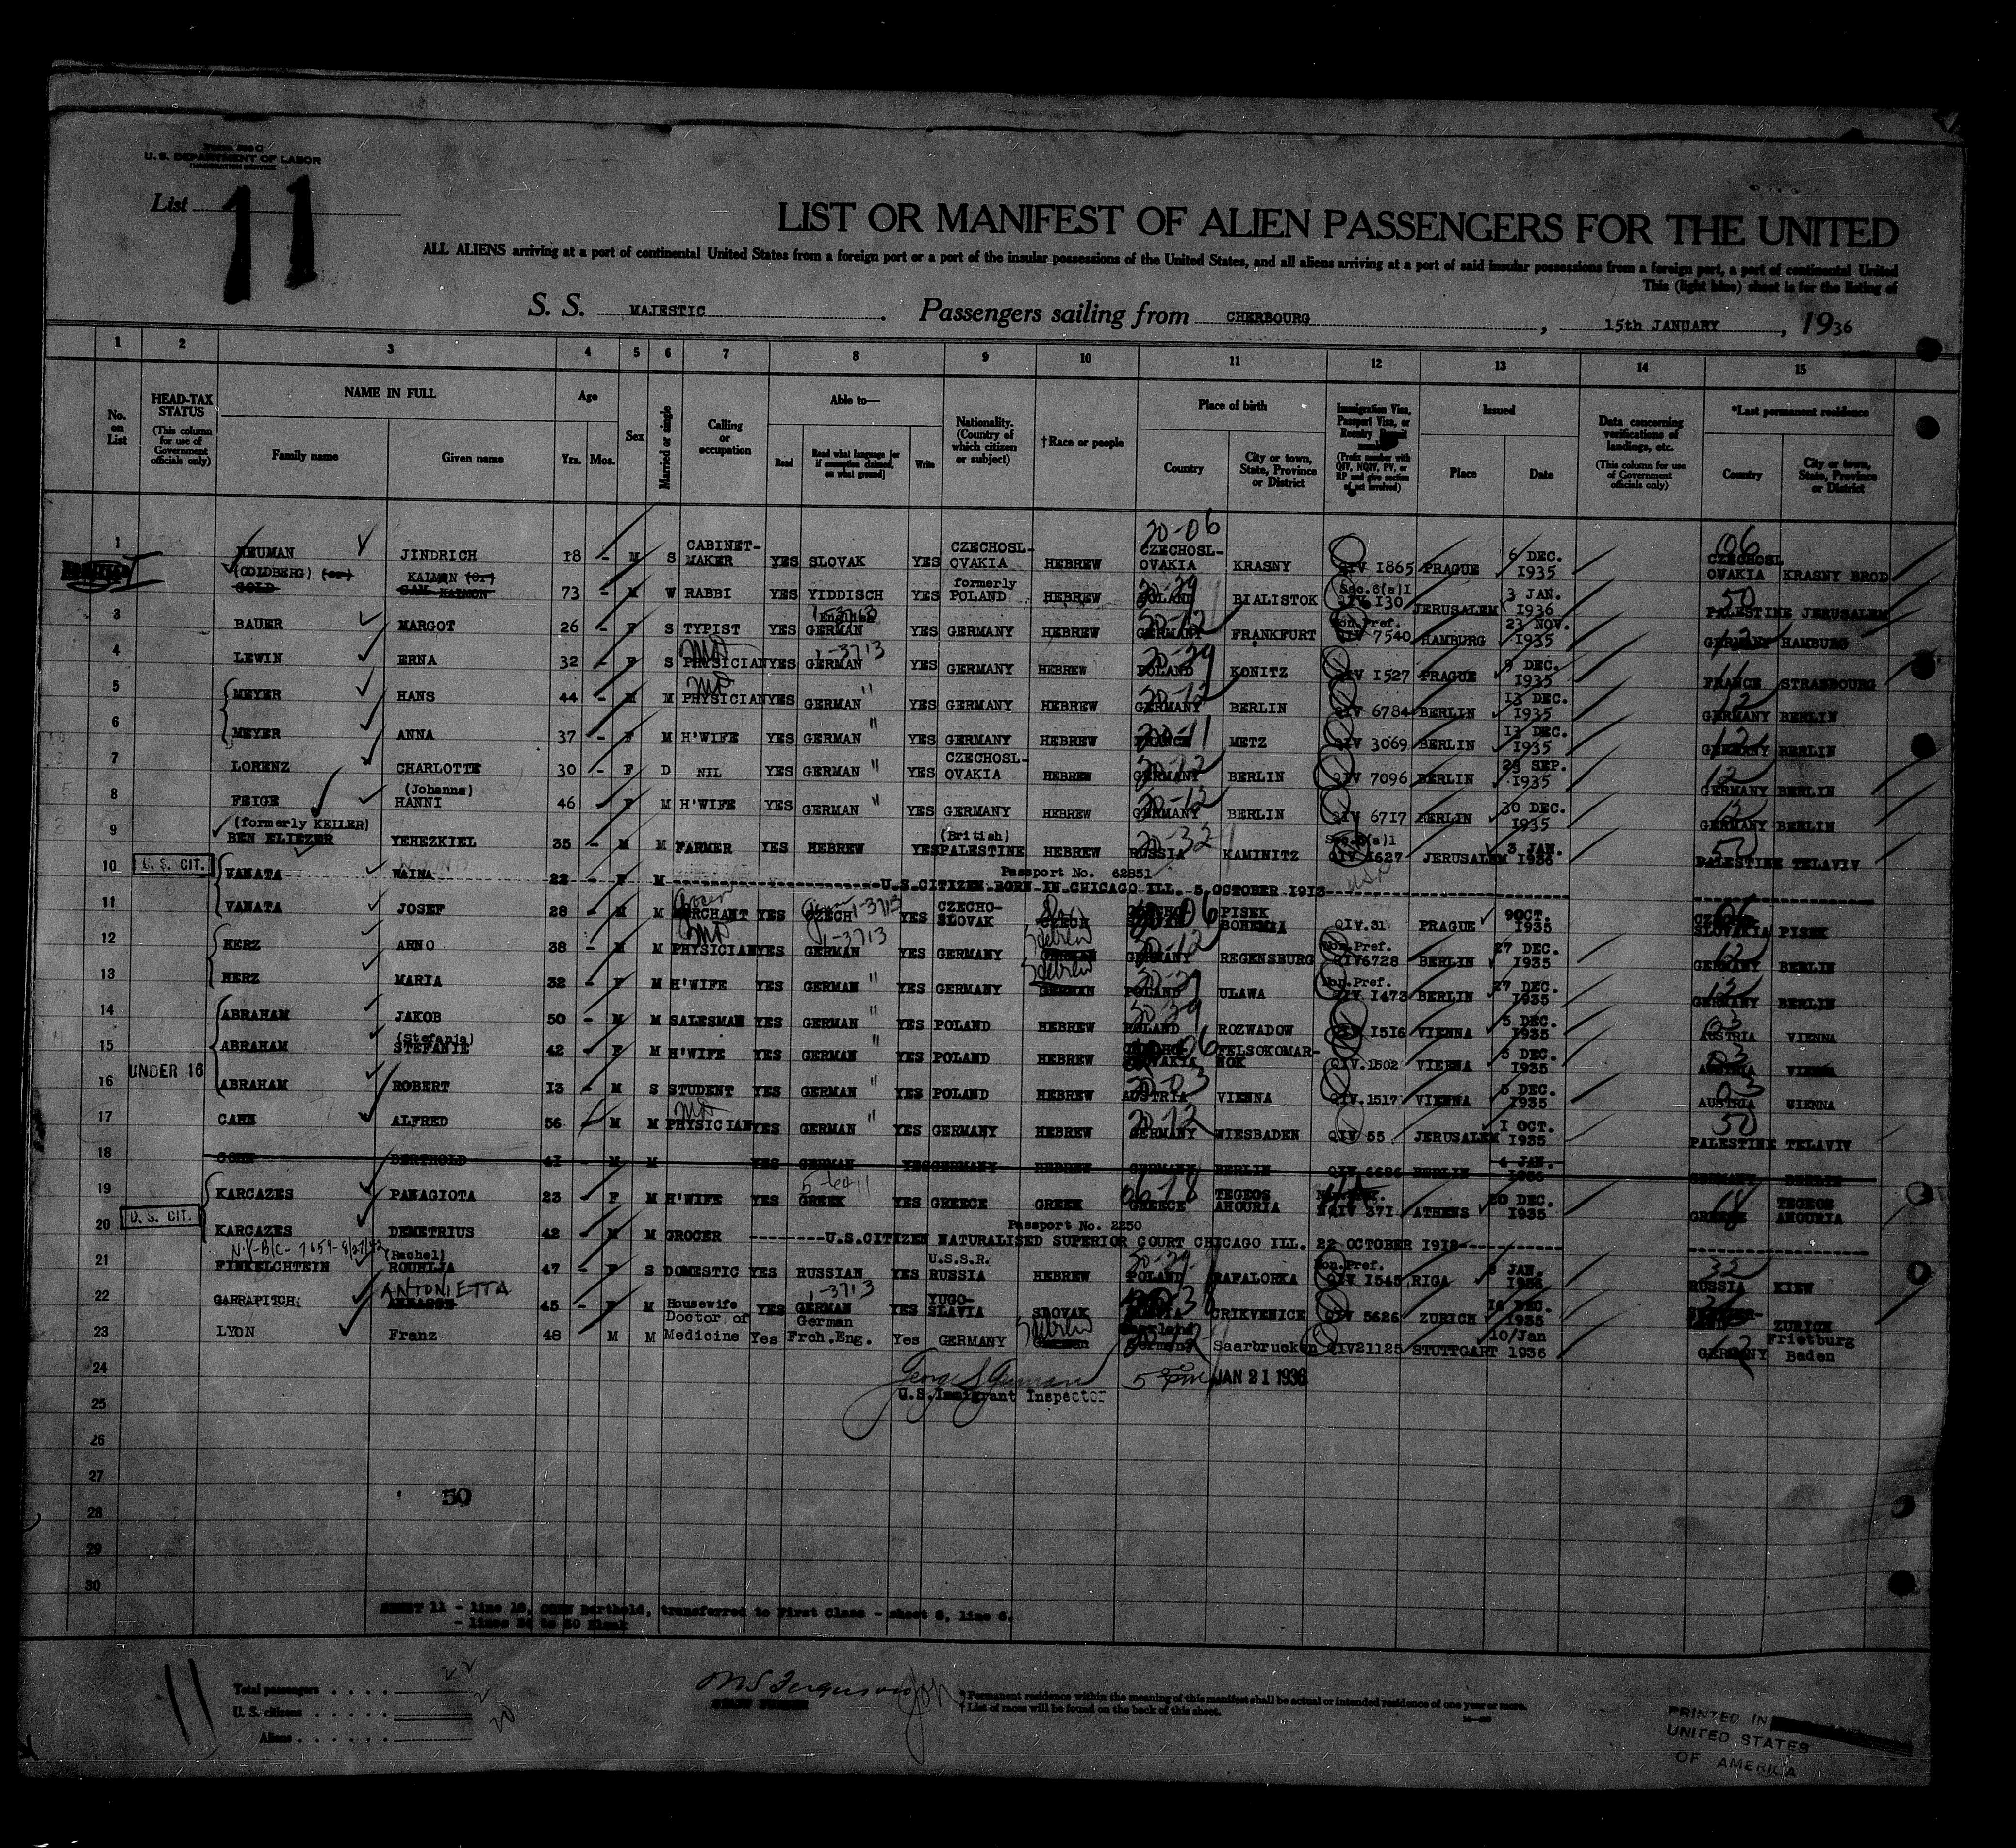 U. S. DEPARTMENT OF LABOR
List 11
LIST OR MANIFEST OF ALIEN PASSENGERS FOR THE UNITED
ALL ALIENS arriving at a port of continental United States from a foreign port or a port of the insular possessions of the United States, and all aliens arriving at a port of said insular possessions from a foreign port, a port of continental United
This (light blue) sheet is for the listing of
S. S. MAJESTIC. Passengers sailing from CHERBOURG, 15th JANUARY, 1936
1 2 3 4 5 6 7 8 9 10 11 12 13 14 15
No. on List
HEAD-TAX STATUS (This column for use of Government officials only)
NAME IN FULL Family name Given name
Age Yrs. Mos.
Sex
Married or single
Calling or occupation
Able to— Read Read what language [or if exemption claimed, on what ground] Write
Nationality. (Country of which citizen or subject)
†Race or people
Place of birth Country City or town, State, Province or District
Immigration Visa, Passport Visa, or Reentry Permit number (Prefix number with QIV, NQIV, PV, or RP and give section of act involved)
Issued Place Date
Data concerning verifications of landings, etc. (This column for use of Government officials only)
*Last permanent residence Country City or town, State, Province or District
1 NEUMAN JINDRICH 18 - M S CABINET-MAKER YES SLOVAK YES CZECHOSL-OVAKIA HEBREW 20-06 CZECHOSL-OVAKIA KRASNY QIV 1865 PRAGUE 6 DEC. 1935 06 CZECHOSL OVAKIA KRASNY BROD
(GOLDBERG) (or) GOLD KALMON (Or) SAM KALMON 73 - M W RABBI YES YIDDISCH YES formerly POLAND HEBREW POLAND BIALISTOK Sec.6(a)1 QIV 130 JERUSALEM 3 JAN. 1936 50 PALESTINE JERUSALEM
3 BAUER MARGOT 26 - F S TYPIST YES English GERMAN YES GERMANY HEBREW 20-12 GERMANY FRANKFURT Non.Pref. QIV 7540 HAMBURG 23 NOV. 1935 12 GERMANY HAMBURG
4 LEWIN ERNA 32 - F S MD PHYSICIAN YES 1-3713 GERMAN YES GERMANY HEBREW 20-29 POLAND KONITZ QIV 1527 PRAGUE 9 DEC. 1935 11 FRANCE STRASBOURG
5 MEYER HANS 44 - M M MD PHYSICIAN YES GERMAN " YES GERMANY HEBREW 20-12 GERMANY BERLIN QIV 6784 BERLIN 13 DEC. 1935 12 GERMANY BERLIN
6 MEYER ANNA 37 - F M H'WIFE YES GERMAN " YES GERMANY HEBREW 20-11 FRANCE METZ QIV 3069 BERLIN 13 DEC. 1935 12 GERMANY BERLIN
7 LORENZ CHARLOTTE 30 - F D NIL YES GERMAN " YES CZECHOSL-OVAKIA HEBREW 20-12 GERMANY BERLIN QIV 7096 BERLIN SEP. 1935 12 GERMANY BERLIN
8 FEIGE (Johanna) HANNI 46 F M H'WIFE YES GERMAN " YES GERMANY HEBREW 20-12 GERMANY BERLIN QIV 6717 BERLIN 30 DEC. 1935 12 GERMANY BERLIN
9 (formerly KELLER) BEN ELIEZER YEHEZKIEL 35 - M M FARMER YES HEBREW YES (British) PALESTINE HEBREW 20-32 RUSSIA KAMINITZ QIV 1627 JERUSALEM 3 JAN. 1936 50 PALESTINE TELAVIV
10 U. S. CIT. VANATA WAINA 22 - F M Passport No. 62851 U.S.CITIZEN BORN IN CHICAGO ILL. 5 OCTOBER 1913
11 VANATA JOSEF 28 - M M Grocer MERCHANT YES CZECH 1-3713 YES CZECHO-SLOVAK CZECH 06 PISEK BOHEMIA QIV.31 PRAGUE 9OCT. 1935 SLOVAKIA PISEK
12 HERZ ARNO 38 - M M MD PHYSICIAN YES 1-3713 GERMAN YES GERMANY Hebrew GERMAN 20-12 GERMANY REGENSBURG Non.Pref. QIV6728 BERLIN 27 DEC. 1935 12 GERMANY BERLIN
13 HERZ MARIA 32 - F M H'WIFE YES GERMAN " YES GERMANY Hebrew GERMAN 20-29 POLAND ULAWA Non.Pref. QIV 1473 BERLIN 27 DEC. 1935 12 GERMANY BERLIN
14 ABRAHAM JAKOB 50 - M M SALESMAN YES GERMAN " YES POLAND HEBREW 20-29 POLAND ROZWADOW QIV 1516 VIENNA 5 DEC. 1935 03 AUSTRIA VIENNA
15 ABRAHAM (Stefania) STEFANIE 42 - F M H'WIFE YES GERMAN " YES POLAND HEBREW 06 FELSOKOMAR-NOK QIV.1502 VIENNA 5 DEC. 1935 03 AUSTRIA VIENNA
16 UNDER 16 ABRAHAM ROBERT 13 - M S STUDENT YES GERMAN " YES POLAND HEBREW 20-03 AUSTRIA VIENNA QIV.1517 VIENNA 5 DEC. 1935 03 AUSTRIA VIENNA
17 CAHN ALFRED 56 - M M MD PHYSICIAN YES GERMAN " YES GERMANY HEBREW 20-12 GERMANY WIESBADEN QIV 55 JERUSALEM 1 OCT. 1935 50 PALESTINE TELAVIV
18 COHN BERTHOLD 41 - M M YES GERMAN YES GERMANY HEBREW GERMANY BERLIN QIV BERLIN 4 JAN. 1936 GERMANY BERLIN
19 KARCAZES PANAGIOTA 23 F M H'WIFE YES GREEK YES GREECE GREEK 18 GREECE TEGEOS AHOURIA QIV 371 ATHENS 20 DEC. 1935 18 GREECE TEGEOS AHOURIA
20 U. S. CIT. KARCAZES DEMETRIUS 42 - M M GROCER Passport No. 2250 U.S.CITIZEN NATURALISED SUPERIOR COURT CHICAGO ILL. 22 OCTOBER 1918
21 FINKELCHTEIN (Rachel) ROUHLJA 47 - F S DOMESTIC YES RUSSIAN YES U.S.S.R. RUSSIA HEBREW POLAND RAFALORKA Non.Pref. QIV 1545 RIGA JAN. 1936 32 RUSSIA KIEW
22 GARRAPITCH ANTONIETTA 45 - F M Housewife YES 1-3713 GERMAN YES YUGO-SLAVIA SLOVAK CRIKVENICE QIV 5626 ZURICH DEC. 1935 ZURICH
23 LYON Franz 48 M M Doctor of Medicine Yes German Frch.Eng. Yes GERMANY Hebrew German Germany Saarbrucken QIV21125 STUTTGART 10/Jan 1936 12 GERMANY Frietburg Baden
24 JAN 21 1936
U.S.Immigrant Inspector
25
26
27
28
29
30
50
SHEET 11 - line 18, COHN Berthold, transferred to First Class - sheet 6, line 6.
- lines 24 to 30 Blank
11
Total passengers . . . . 22
U. S. citizens . . . . . 2
Aliens . . . . . . 20
*Permanent residence within the meaning of this manifest shall be actual or intended residence of one year or more.
†List of races will be found on the back of this sheet.
PRINTED IN
UNITED STATES
OF AMERICA